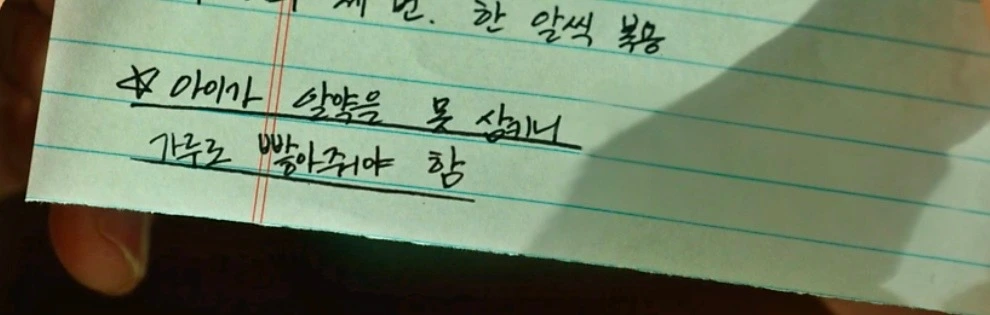 세 번. 한 알씩 복용
☆ 아이가 알약은 못 삼키니
가루로 빻아줘야 함